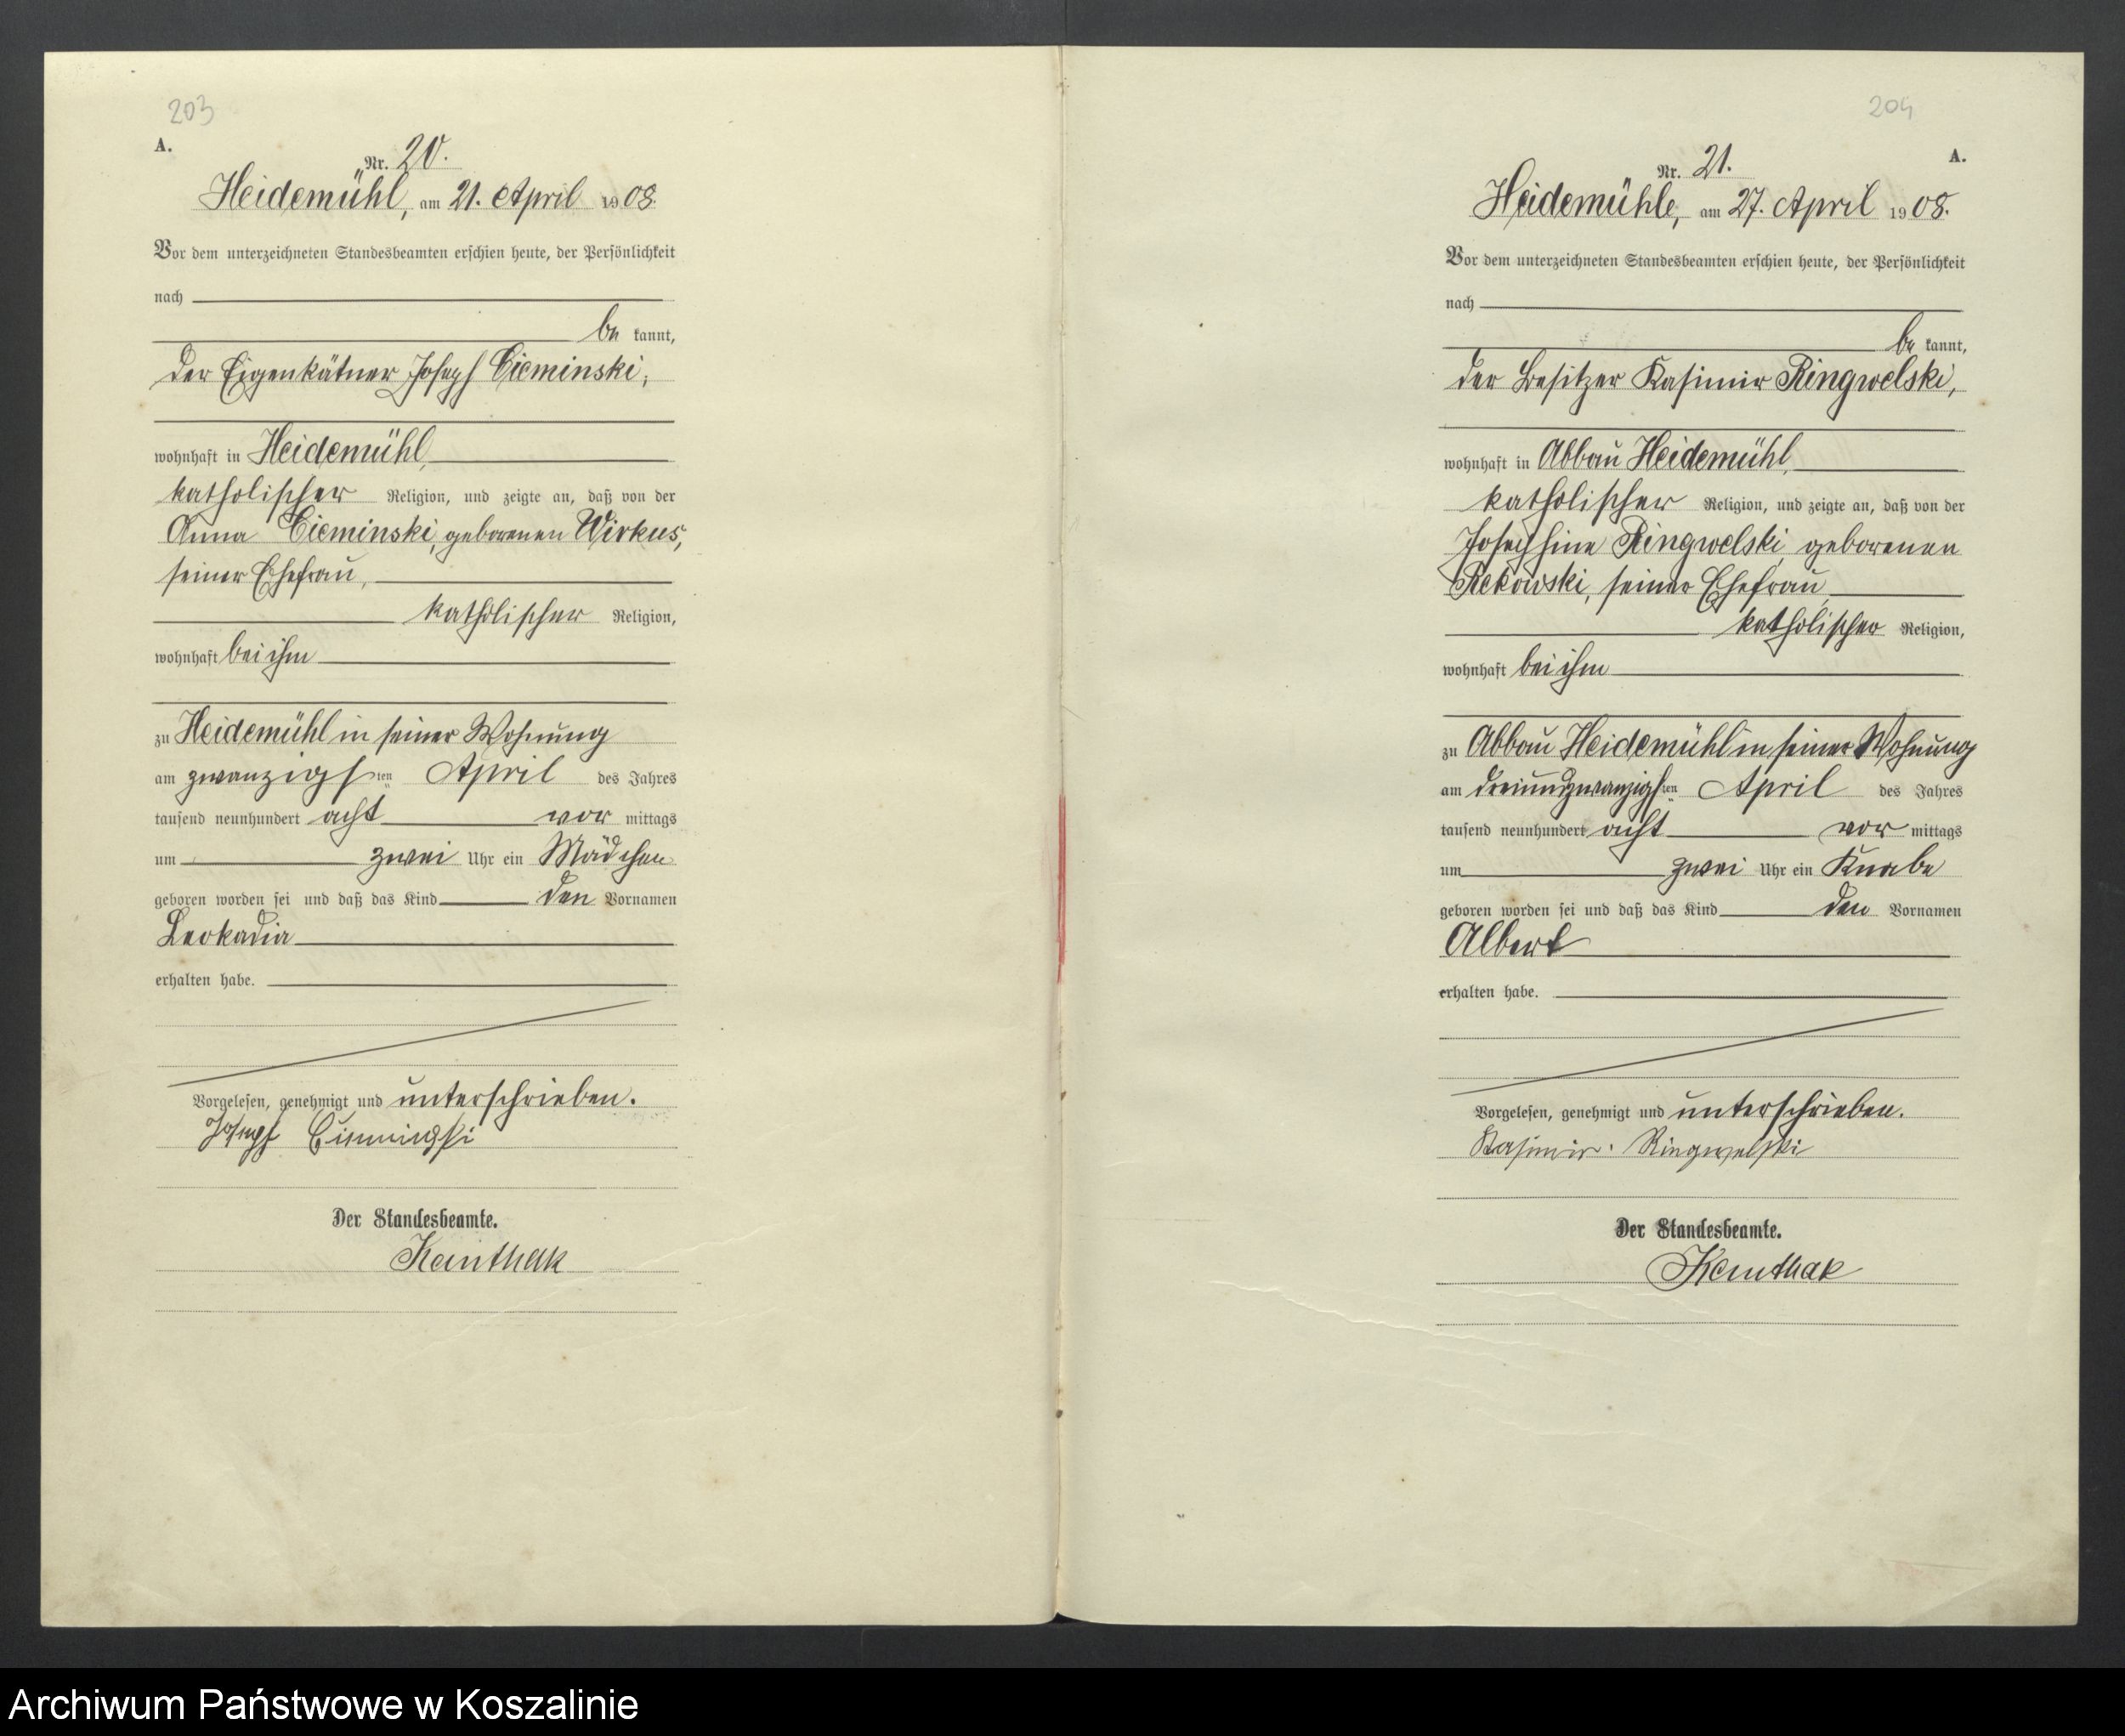 203
A.
Nr. 20.
Heidemühl, am 21. April 1908.
Vor dem unterzeichneten Standesbeamten erschien heute, der Persönlichkeit
nach
be kannt,
der Eigenkätner Joseph Cieminski,
wohnhaft in Heidemühl,
katholischer Religion, und zeigte an, daß von der
Anna Cieminski, geborenen Wirkus,
seiner Ehefrau,
katholischer Religion,
wohnhaft bei ihm
zu Heidemühl in seiner Wohnung
am zwanzigsten April des Jahres
tausend neunhundert acht vor mittags
um zwei Uhr ein Mädchen
geboren worden sei und daß das Kind den Vornamen
Leokadia
erhalten habe.
Vorgelesen, genehmigt und unterschrieben.
Joseph Cieminski
Der Standesbeamte.
Kanthak
204
A.
Nr. 21.
Heidemühle, am 27. April 1908.
Vor dem unterzeichneten Standesbeamten erschien heute, der Persönlichkeit
nach
be kannt,
der Besitzer Kasimir Ringwelski,
wohnhaft in Abbau Heidemühl,
katholischer Religion, und zeigte an, daß von der
Josephine Ringwelski, geborenen
Rekowski, seiner Ehefrau,
katholischer Religion,
wohnhaft bei ihm
zu Abbau Heidemühl in seiner Wohnung
am dreiundzwanzigsten April des Jahres
tausend neunhundert acht vor mittags
um zwei Uhr ein Knabe
geboren worden sei und daß das Kind den Vornamen
Albert
erhalten habe.
Vorgelesen, genehmigt und unterschrieben.
Kasimir Ringwelski
Der Standesbeamte.
Kanthak
Archiwum Państwowe w Koszalinie